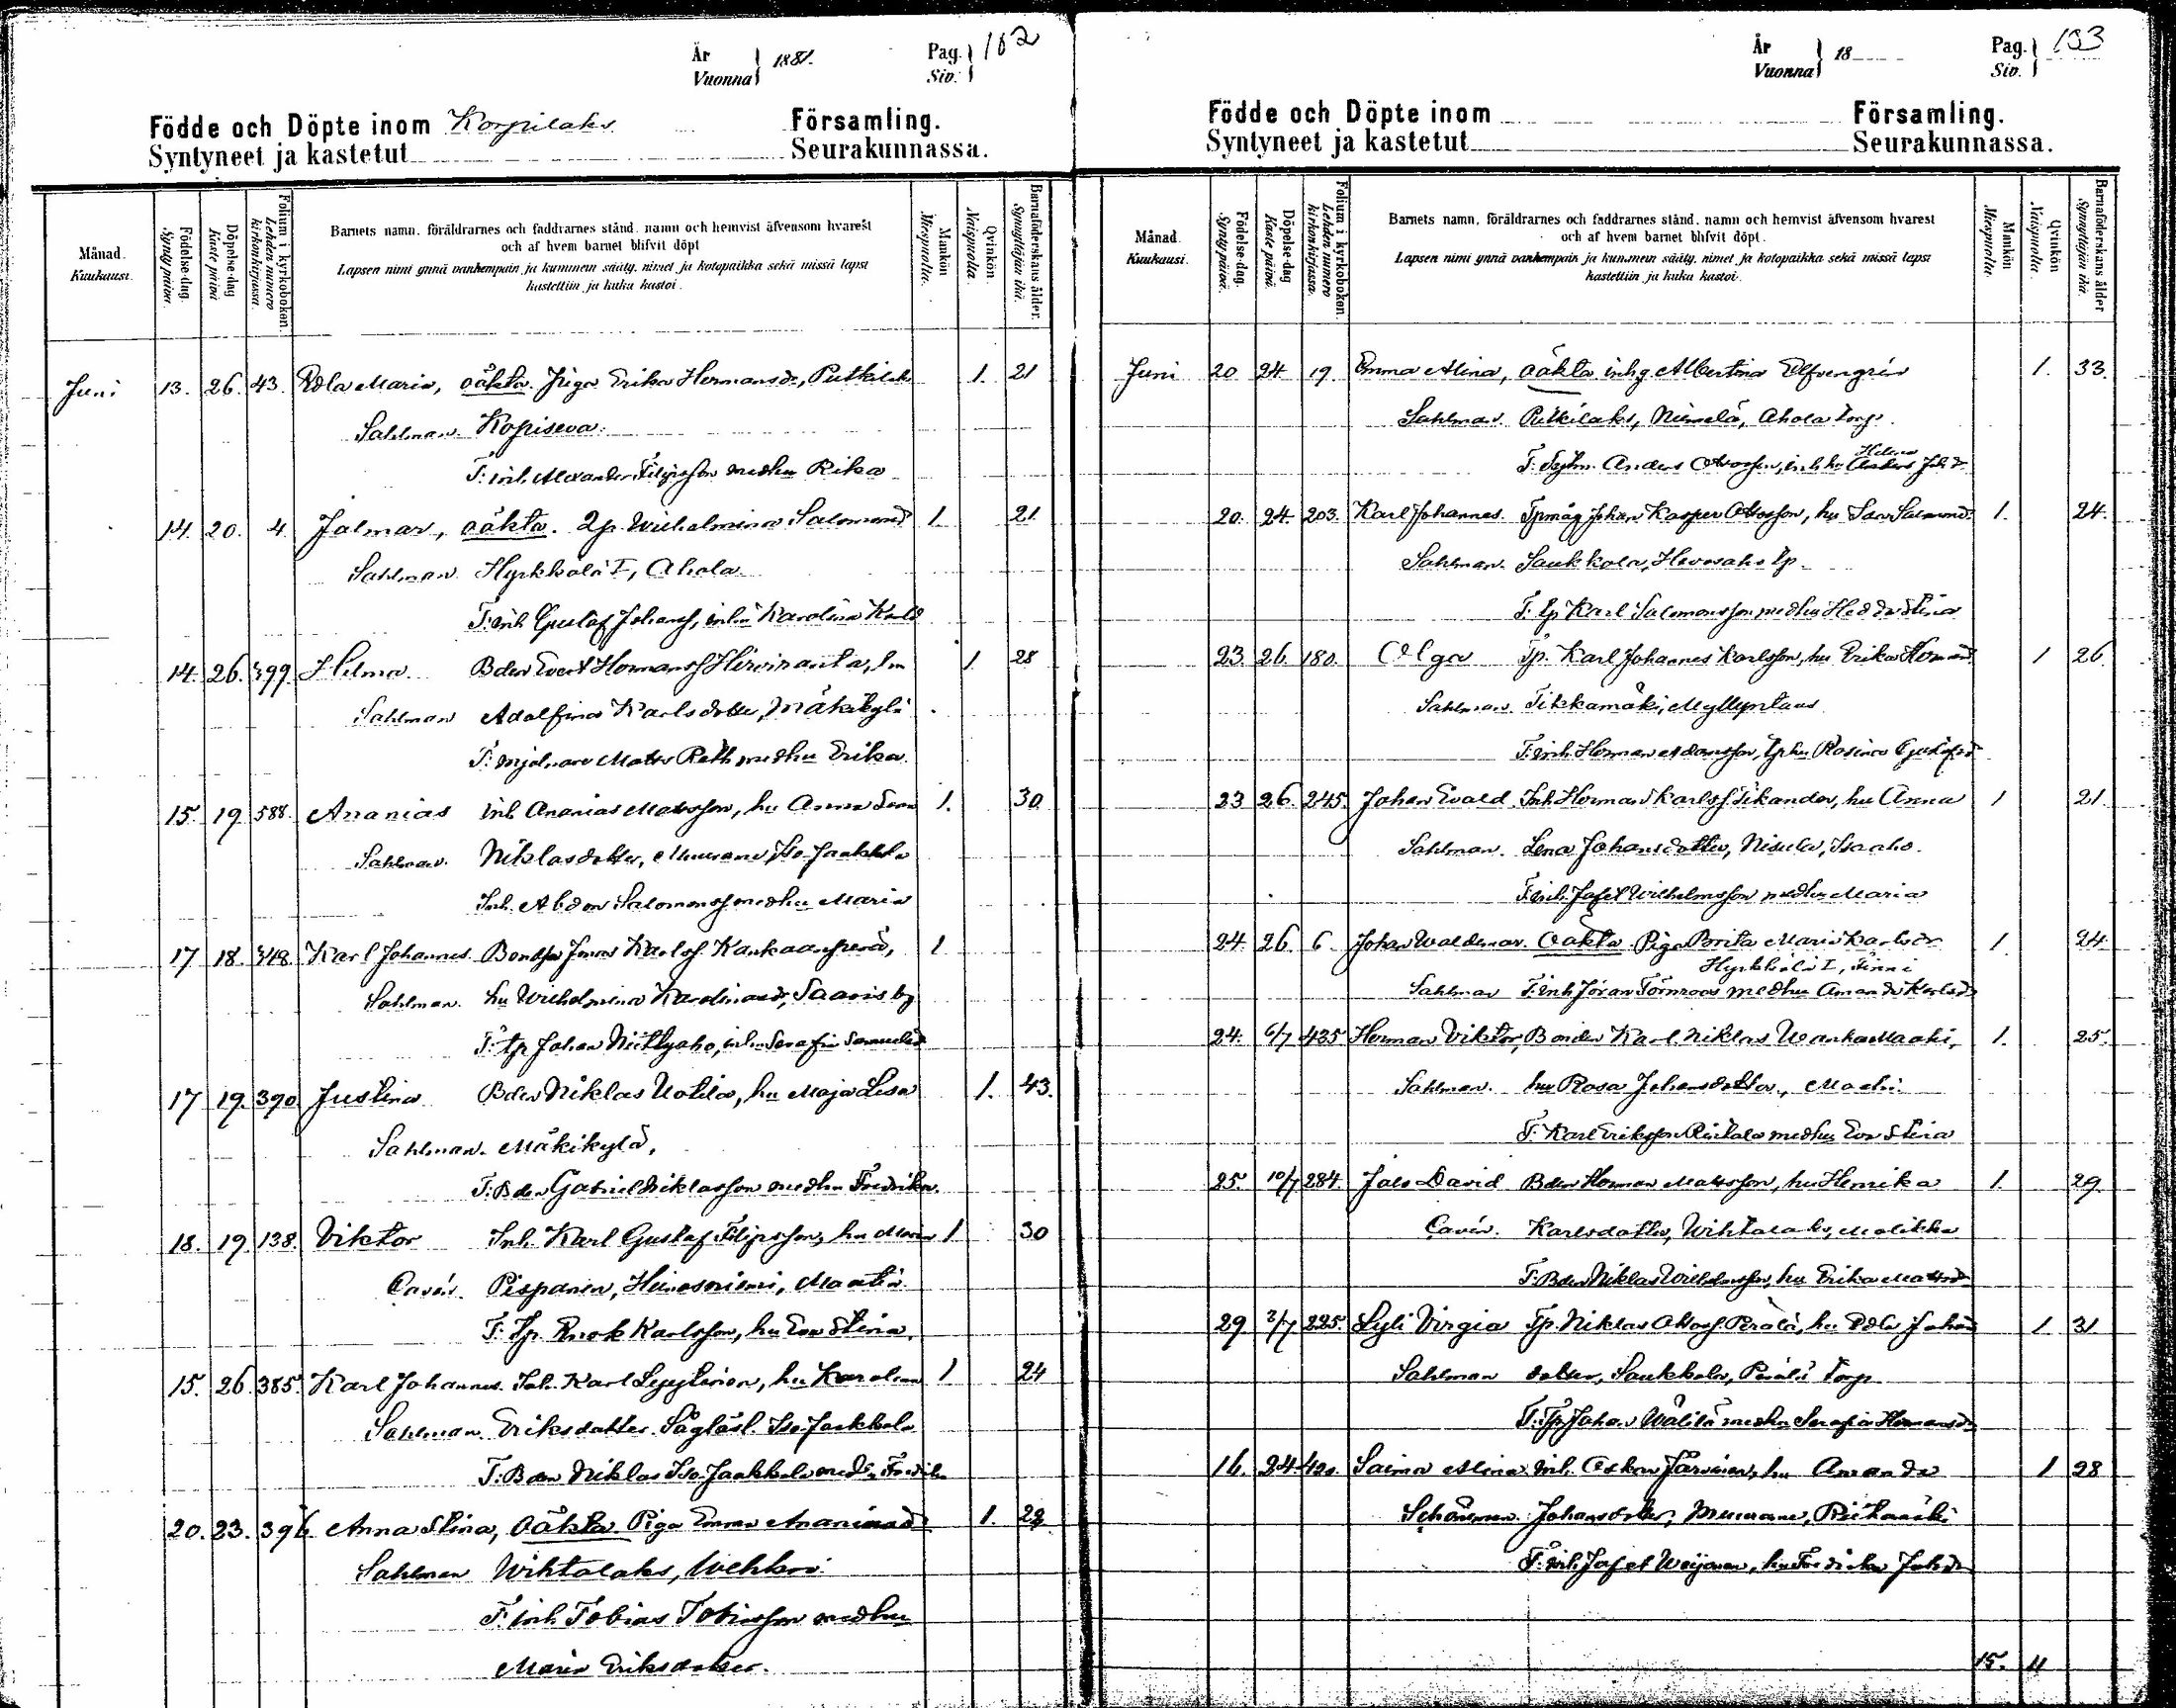 År
Vuonna
1881.
Pag.
Siv.
102
Födde och Döpte inom Korpilaks Församling.
Syntyneet ja kastetut Seurakunnassa.
Månad.
Kuukausi.
Födelse-dag.
Synty päivä.
Döpelse-dag
Kaste päivä
Folium i kyrkoboken.
Lehden numero
kirkonkirjassa.
Barnets namn, föräldrarnes och faddrarnes stånd, namn och hemvist äfvensom hvarest
och af hvem barnet blifvit döpt
Lapsen nimi ynnä vanhempain ja kummein sääty, nimet ja kotopaikka sekä missä lapsi
kastettiin ja kuka kastoi.
Mankön
Miespuolia.
Qvinkön.
Naispuolia.
Barnaföderskans ålder.
Synnyttäjän ikä.
Juni 13. 26. 43. Edla Maria, oäkta. Piga Erika Hermansdr, Putkilaks 1. 21
Sahlman. Kopiseva.
F: inh. Alexander Filipsson med hu Rika
14. 20. 4 Jalmar, oäkta. Tp. Wilhelmina Salomonsd 1 21
Sahlman Hyrkkälä I, Ahola
F: inh Gustaf Johansf, Karolina Karlsd
14. 26. 399. Hilma. Bden Evert Hermansf Hirviranta, hu 1 28
Sahlman Adolfina Karlsdotter, Mäkikylä
F: mjölnare Matts Rath med hu Erika.
15. 19 588. Ananias inh Ananias Mattsson, hu Anna Lena 1. 30
Sahlman. Niklasdotter, Muurame, Iso-Jaakkola
Inh. Abdon Salomonsf med hu Maria
17 18. 348. Karl Johannes. Bondes Jonas Karlsf Kankaanperä, 1
Sahlman. hu Wilhelmina Karolina, Saaris by
F: tp Johan Niittyaho, Serafia Samuelsd
17 19. 390. Justina Bden Niklas Uotila, hu Maja Lisa 1. 43.
Sahlman. Mäkikylä,
F: Bden Gabriel Niklasson med hu Fredrika.
18. 19. 138. Viktor Inh. Karl Gustaf Filipsson, hu Maria 1 30
Cavén. Pispanen, Heinosniemi, Maatia.
F: Tp. Enok Karlsson, hu Eva Stina.
15. 26. 385. Karl Johannes. Inh. Karl Leppänen, hu Karolina 1 24
Sahlman. Eriksdotter. Sågläsl. Iso-Jaakkola
F: Bden Niklas Iso-Jaakkola med Fredrika
20. 23. 396. Anna Stina, Oäkta. Piga Emma Ananiasd 1. 29
Sahlman Wihtalaks, Wehkoi.
F: inh Tobias Tobiasson med hu
Maria Eriksdotter.
År
Vuonna
18
Pag.
Siv.
103
Födde och Döpte inom Församling.
Syntyneet ja kastetut Seurakunnassa.
Månad.
Kuukausi.
Födelse-dag.
Synty päivä.
Döpelse-dag
Kaste päivä.
Folium i kyrkoboken.
Lehden numero
kirkonkirjassa.
Barnets namn, föräldrarnes och faddrarnes stånd, namn och hemvist äfvensom hvarest
och af hvem barnet blifvit döpt.
Lapsen nimi ynnä vanhempain ja kummein sääty, nimet ja kotopaikka sekä missä lapsi
kastettiin ja kuka kastoi.
Mankön
Miespuolia.
Qvinkön
Naispuolia.
Barnaföderskans ålder
Synnyttäjän ikä.
Juni 20 24 19. Emma Alina, oäkta inhq. Albertina Elfvengrén 1. 33.
Sahlman. Putkilaks, Niemelä, Ahola torp.
Helena
F: Anders Ottosson, inh hu Joh. dr
20. 24 203. Karl Johannes Tpmåg Johan Kasper Ottosson, hu Salomonsd. 1. 24.
Sahlman. Saukkola, Hevosaho tp.
F: tp Karl Salomonsson med hu Hedda Stina
23. 26. 180. Olga Tp. Karl Johannes Karlsson, hu Erika Hermansd 1 26
Sahlman. Tikkamäki, Myllyntaus
F: inh. Herman Adamsson, tp hu Rosina Gustafsd
23 26. 245. Johan Evald. Inh. Herman Karlsf Tikander, hu Anna 1 21.
Sahlman. Lena Johansdotter, Nisula, Isoaho.
F: inh. Jafet Wilhelmsson med hu Maria
24. 26. 6. Johan Waldemar. Oäkta. Piga Brita Maria Karlsdr 1. 24
Hyrkkälä I, Finni
Sahlman F: inh Jöran Törnroos med hu Amanda Karlsdr
24. 6/7 435 Herman Viktor, Bonden Karl Niklas Wanha Maahi, 1. 25.
Sahlman. hu Rosa Johansdotter, Maahi
F: Karl Eriksson Rintala med hu Eva Stina
25. 10/7 284. Jals David Bden Herman Mattsson, hu Henrika 1. 29.
Cavén. Karlsdotter, Wihtalaks, Molikka
F: Bden Niklas Wilhelmsson, hu Erika Mattsd
29 2/7 225. Lyli Virgia Tp. Niklas Ottosf. Perälä, hu Edla Johans 1 31
Sahlman dotter, Saukkola, Perälä torp
F: Tp Johan Wälilä med hu Serafia Hermansdr
16. 24 420. Saima Alina. Inh. Oskar Järvinen, hu Amanda 1 28
Schönman. Johansdotter, Muurame, Riihimäki
F: inh. Jafet Weijanen, hu Fredrika Johdr
15. 11